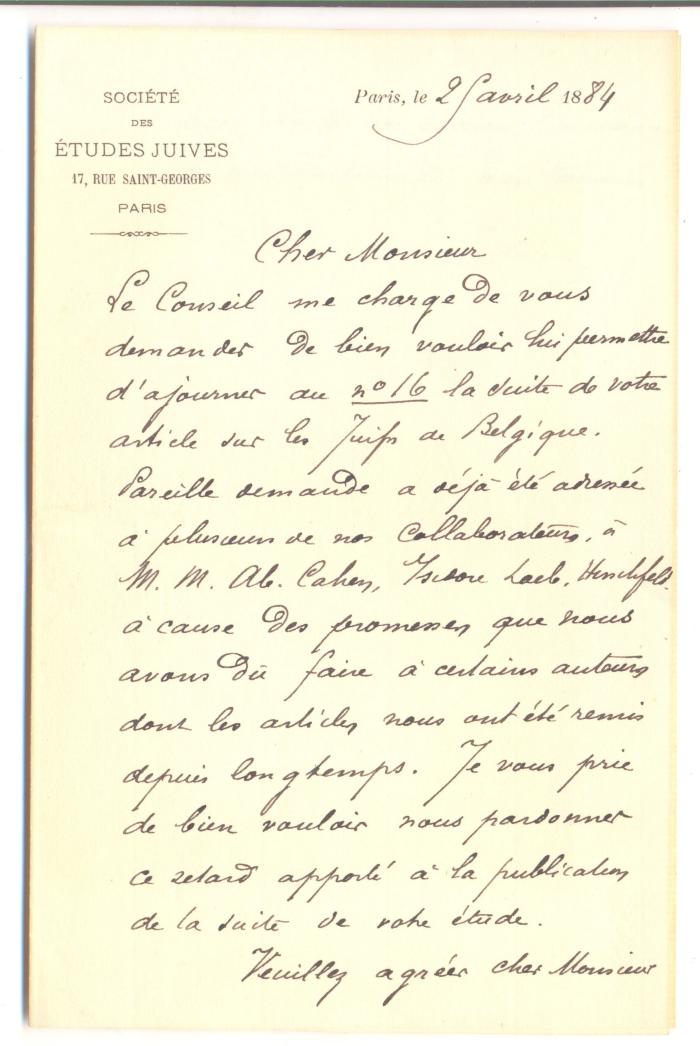 SOCIÉTÉ
DES
ÉTUDES JUIVES
17, RUE SAINT-GEORGES
PARIS
Paris, le 25 avril 1884
Cher Monsieur
Le Conseil me charge de vous
demander de bien vouloir lui permettre
d'ajourner au nº 16 la suite de votre
article sur les Juifs de Belgique.
Pareille demande a déjà été adressée
à plusieurs de nos collaborateurs, à
M. M. Ab. Cahen, Isidore Loeb, Hirschfeld.
à cause des promesses que nous
avons dû faire à certains auteurs
dont les articles nous ont été remis
depuis longtemps. Je vous prie
de bien vouloir nous pardonner
ce retard apporté à la publication
de la suite de votre étude.
Veuillez agréer cher Monsieur